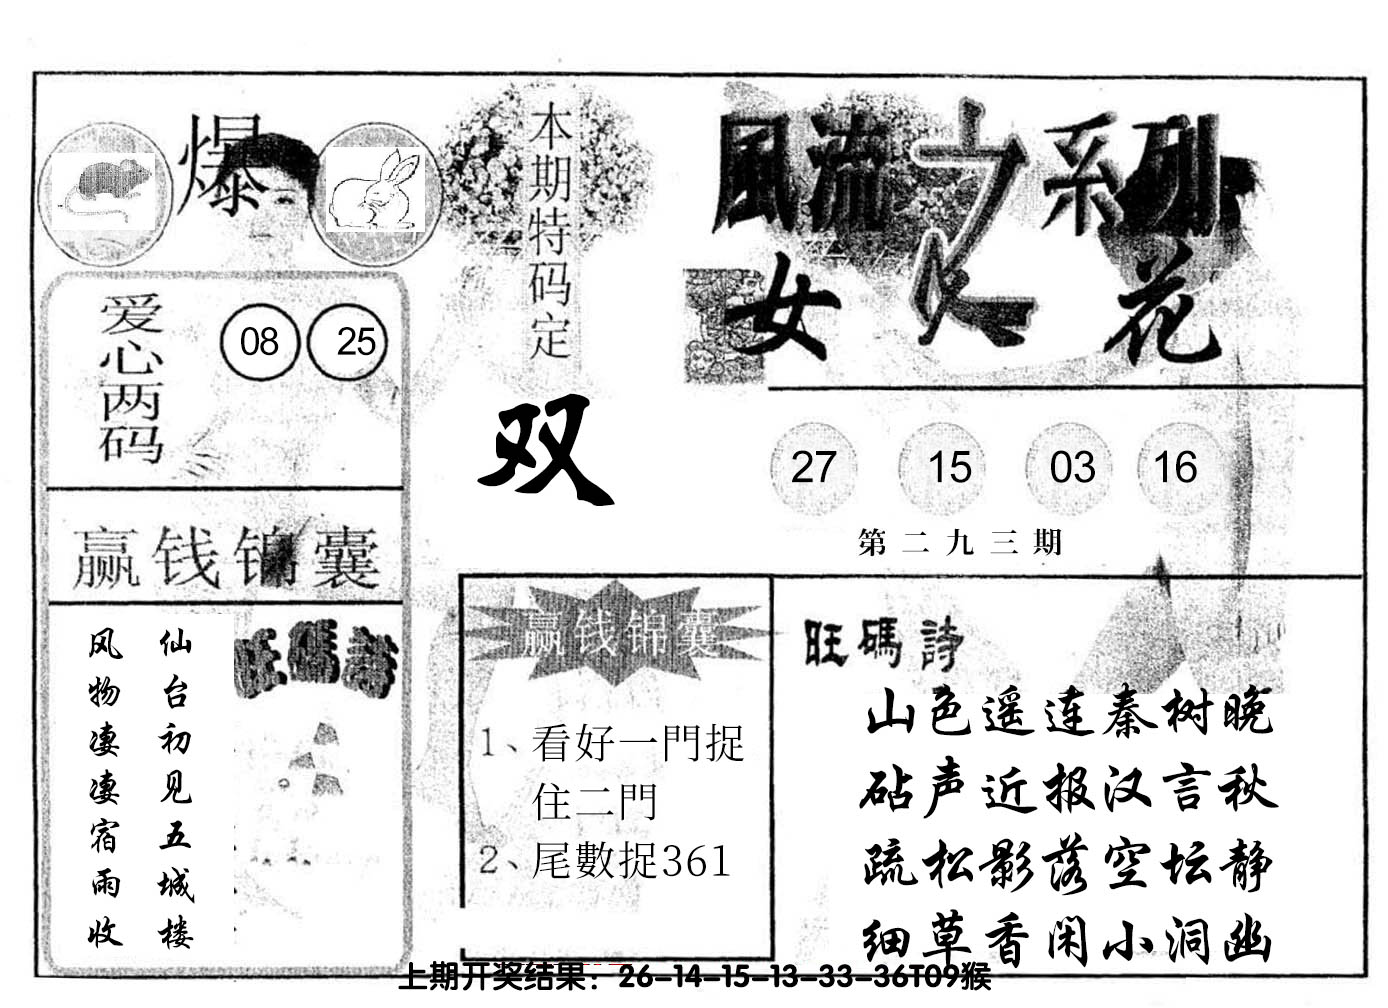 爆
本期特码定
双
風流之系列
女人花
爱心两码
08 25
27 15 03 16
第二九三期
赢钱锦囊
仙台初见五城楼
风物凄凄宿雨收
旺碼詩
赢钱锦囊
1、看好一門捉
住二門
2、尾數捉361
旺碼詩
山色遥连秦树晚
砧声近报汉言秋
疏松影落空坛静
细草香闲小洞幽
上期开奖结果：26-14-15-13-33-36T09猴